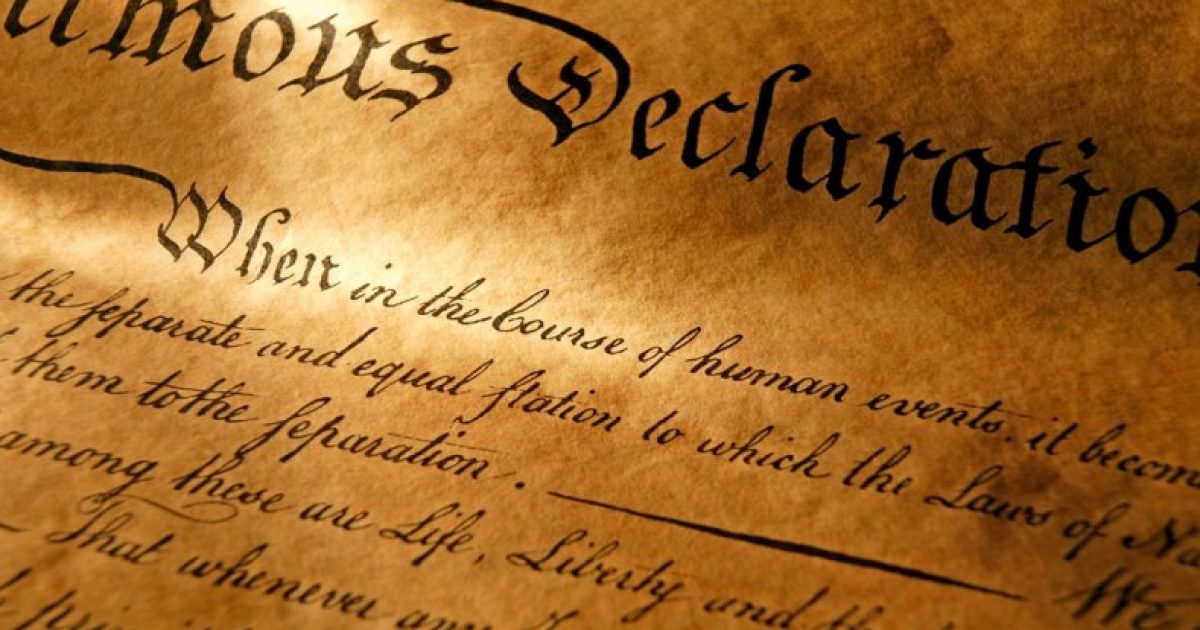 imous Declaratio
When in the Course of human events, it becom
the separate and equal station to which the Laws of Na
them to the separation. — We
among these are Life, Liberty and the
— That whenever any